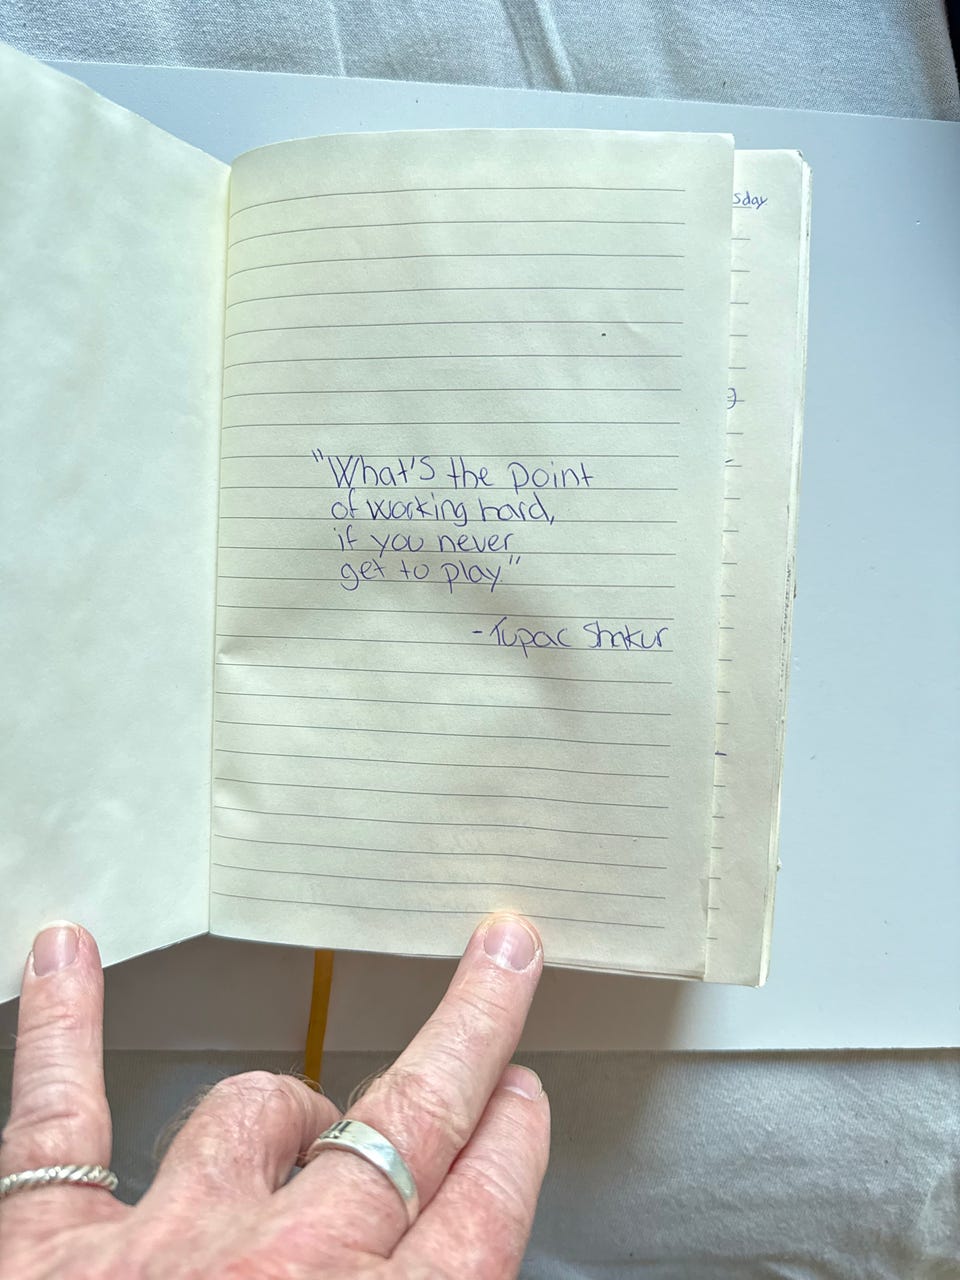 "What's the point
of working hard,
if you never
get to play."
-Tupac Shakur
sday